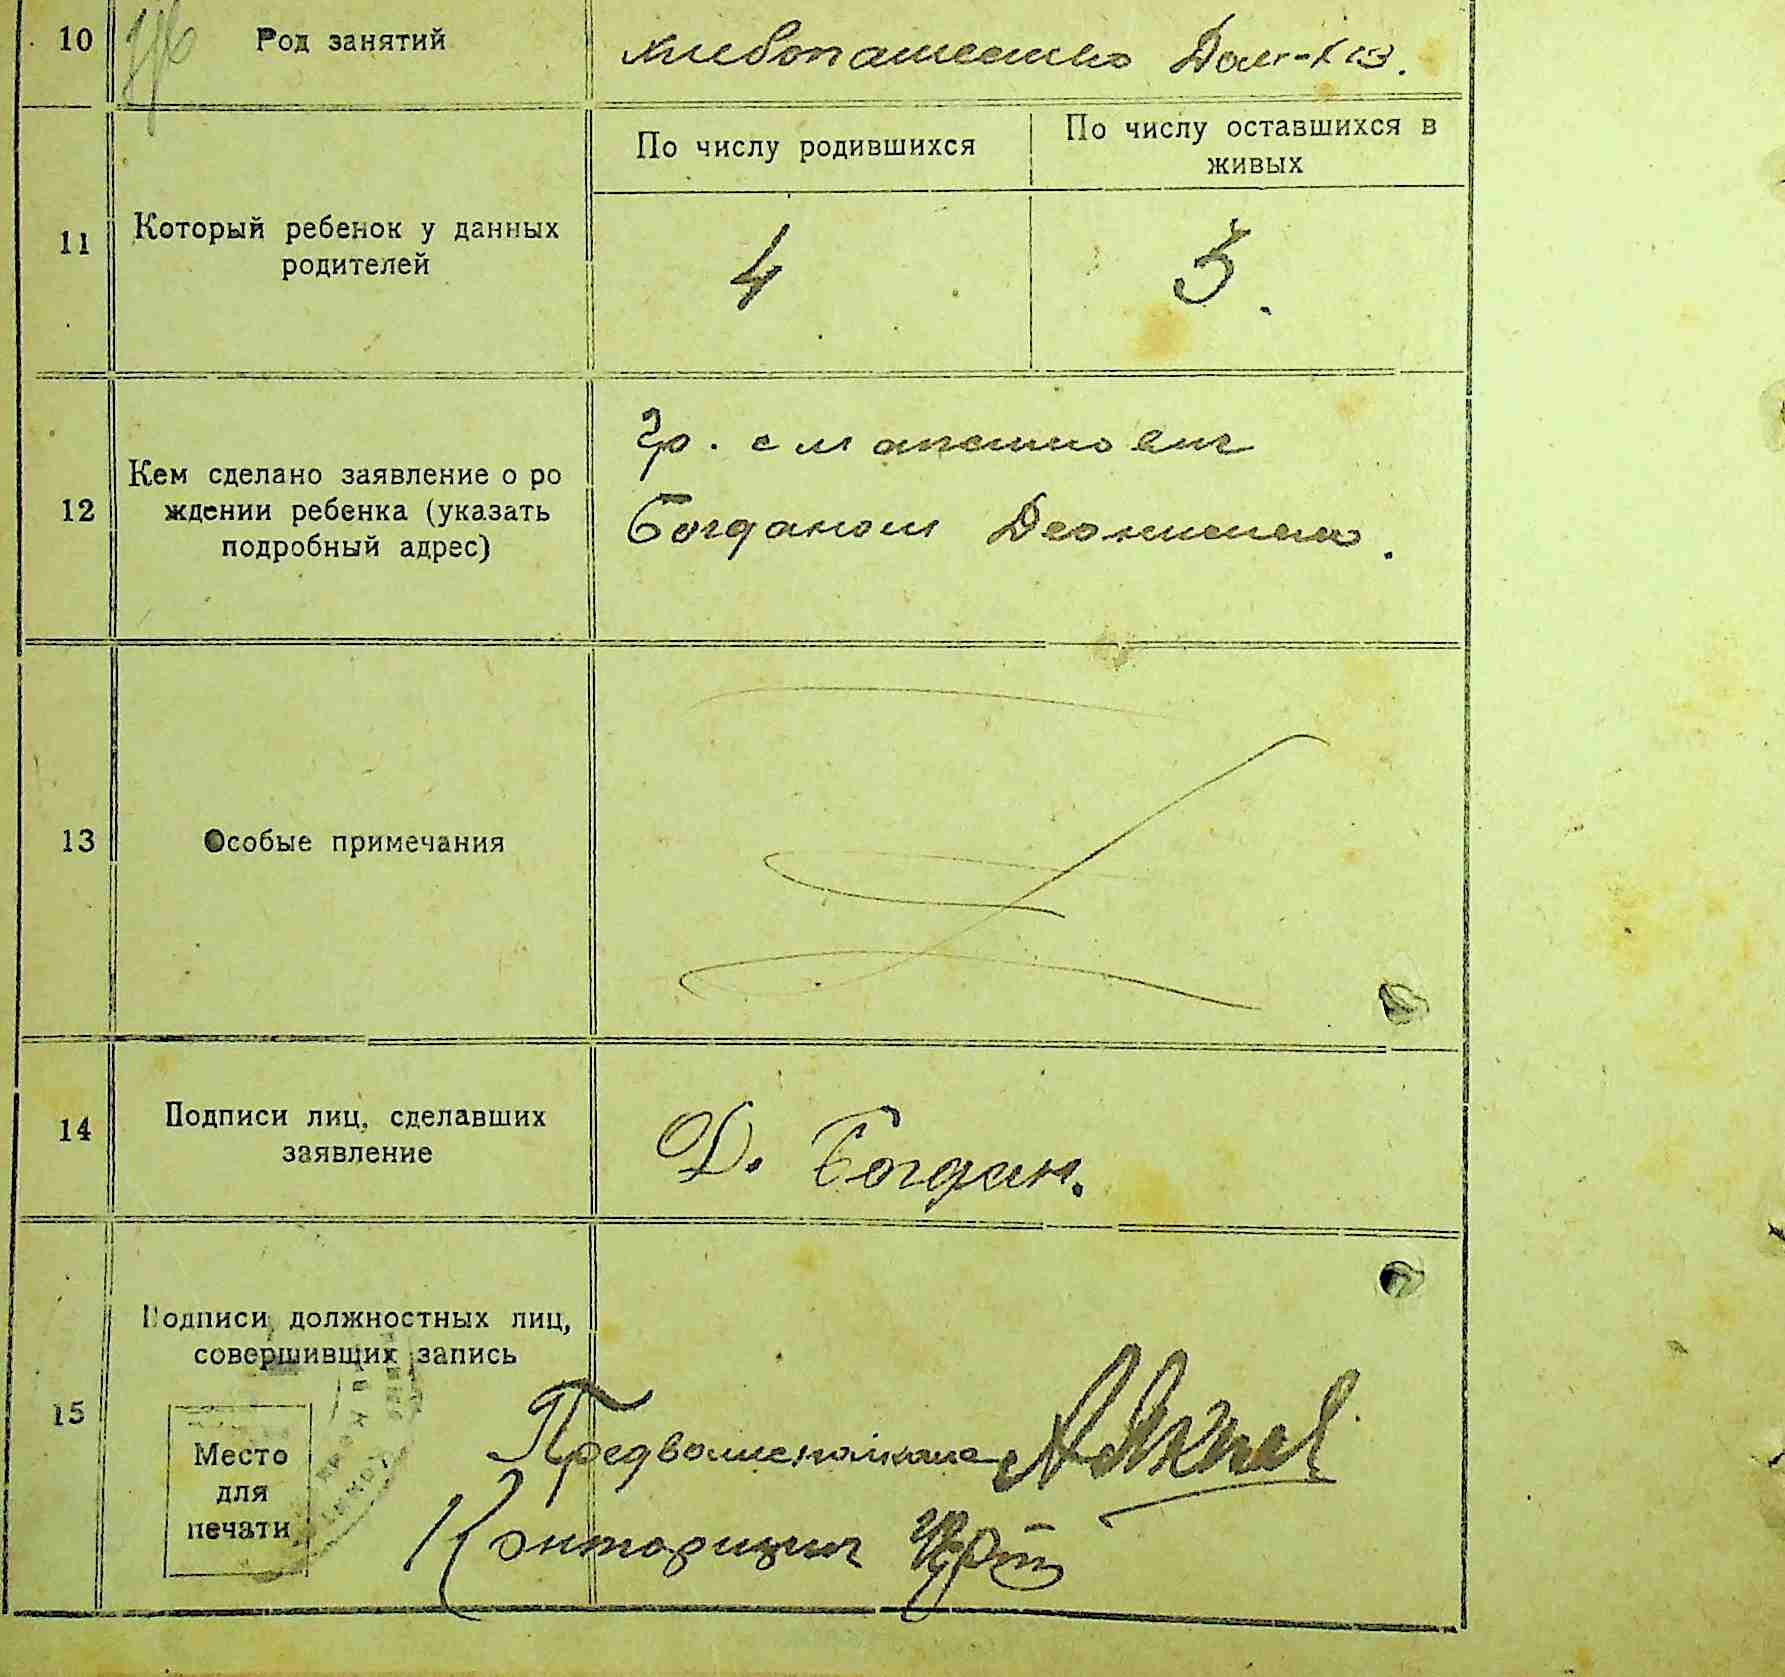 10 Род занятий хлебопашество Дом-хоз.
11 Который ребенок у данных
родителей
По числу родившихся
По числу оставшихся в
живых
4 3.
12 Кем сделано заявление о ро
ждении ребенка (указать
подробный адрес)
Гр.
Богданом
13 Особые примечания
14 Подписи лиц, сделавших
заявление
Д. Богдан.
15 Подписи должностных лиц,
совершивших запись
Место
для
печати
Предволисполкома
Конторщик